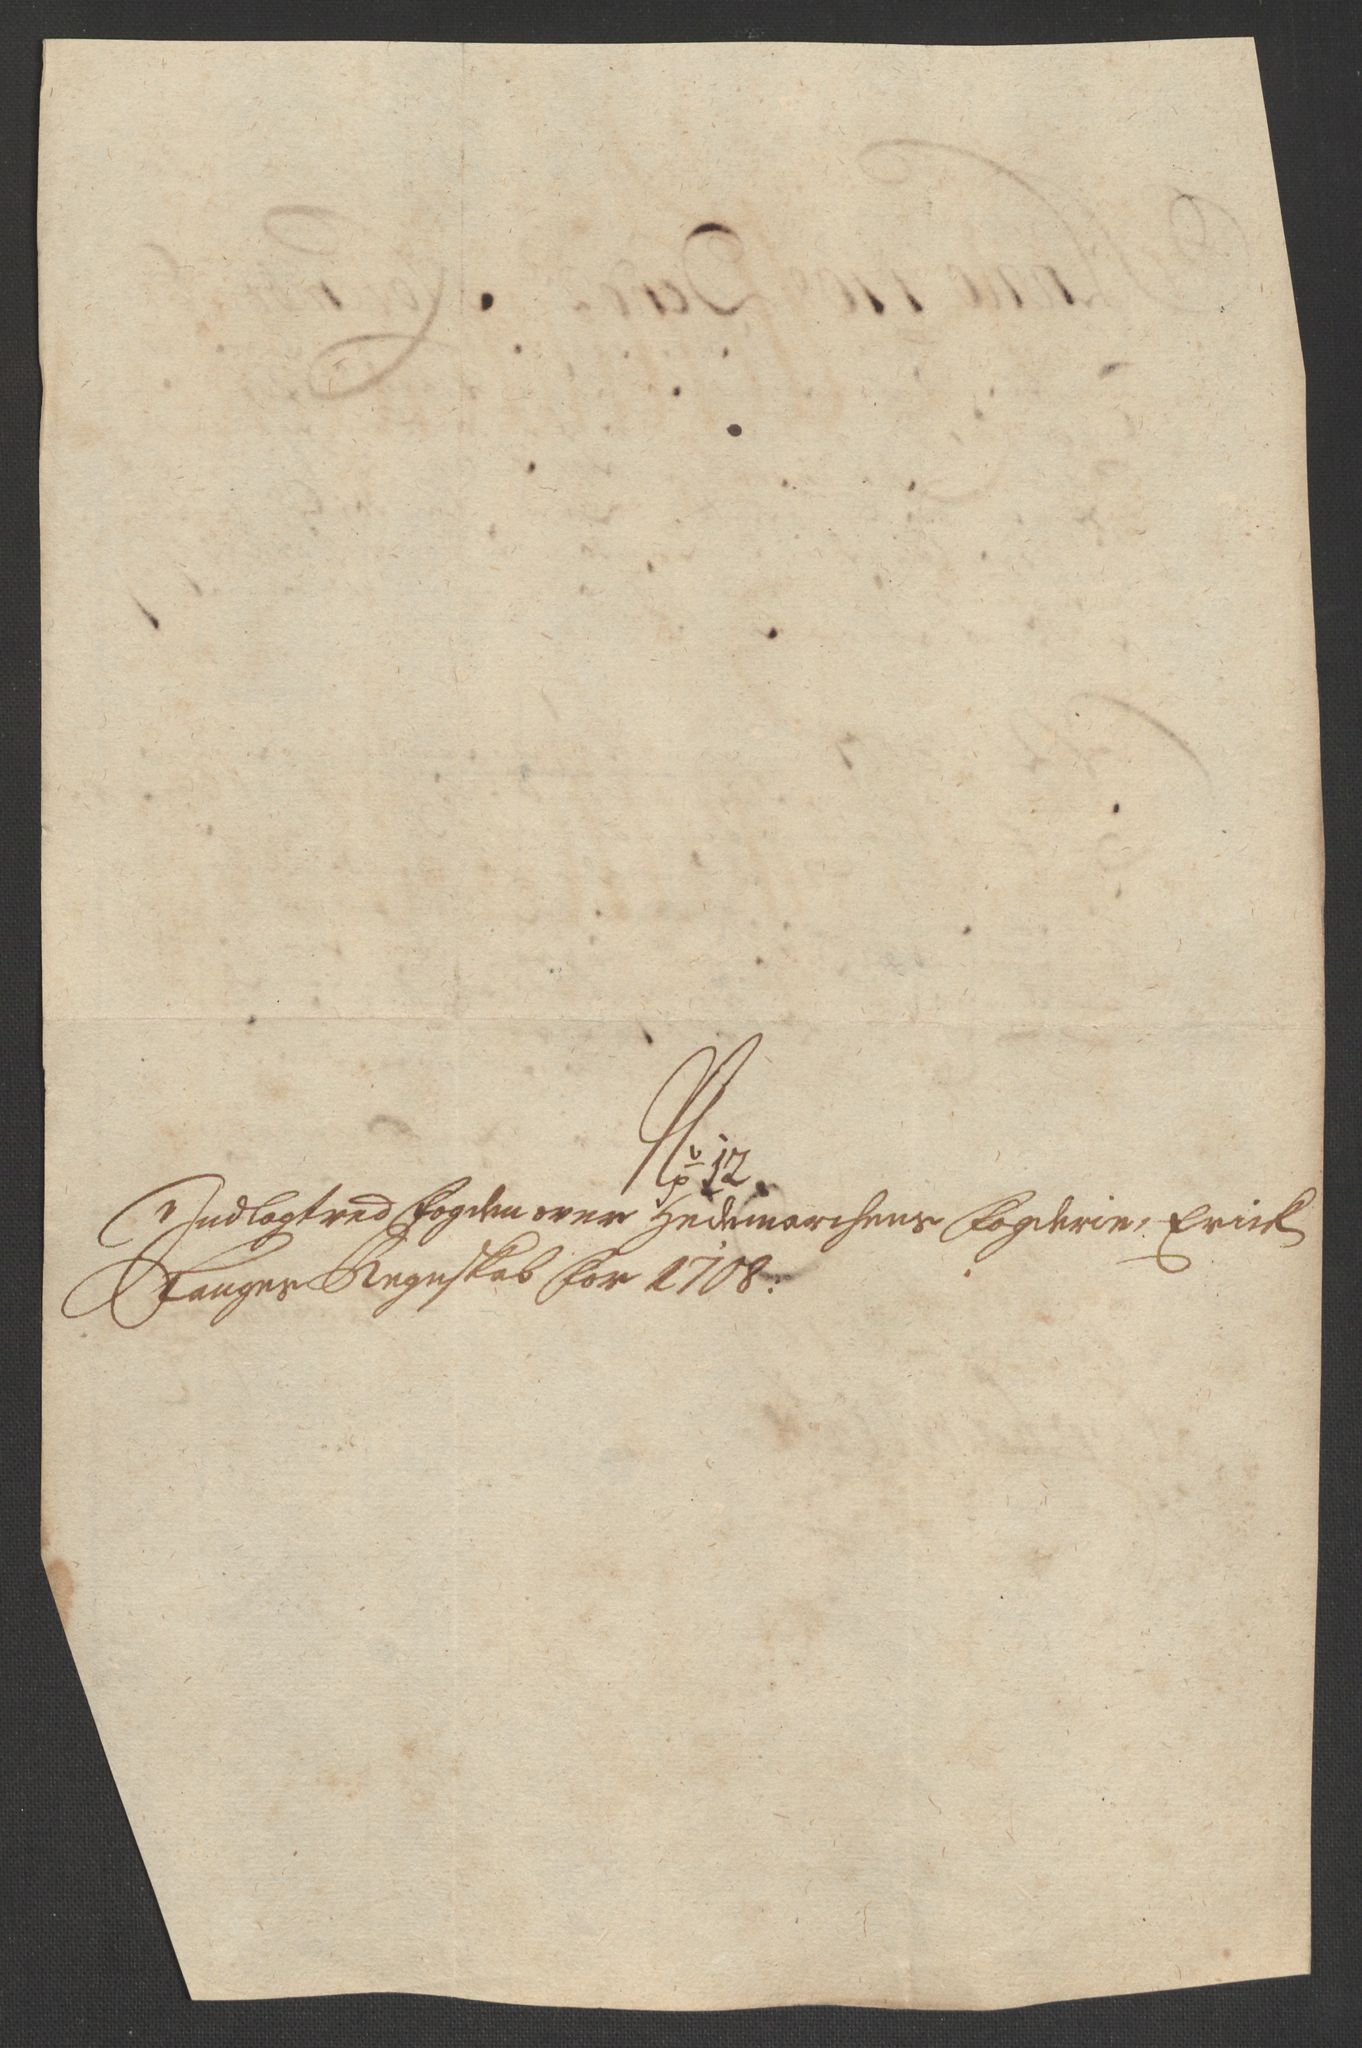 No 12
Indlagt ved Fogden over Hedemarchens Fogderie, Erich
Fanges Regnskab for 1708: